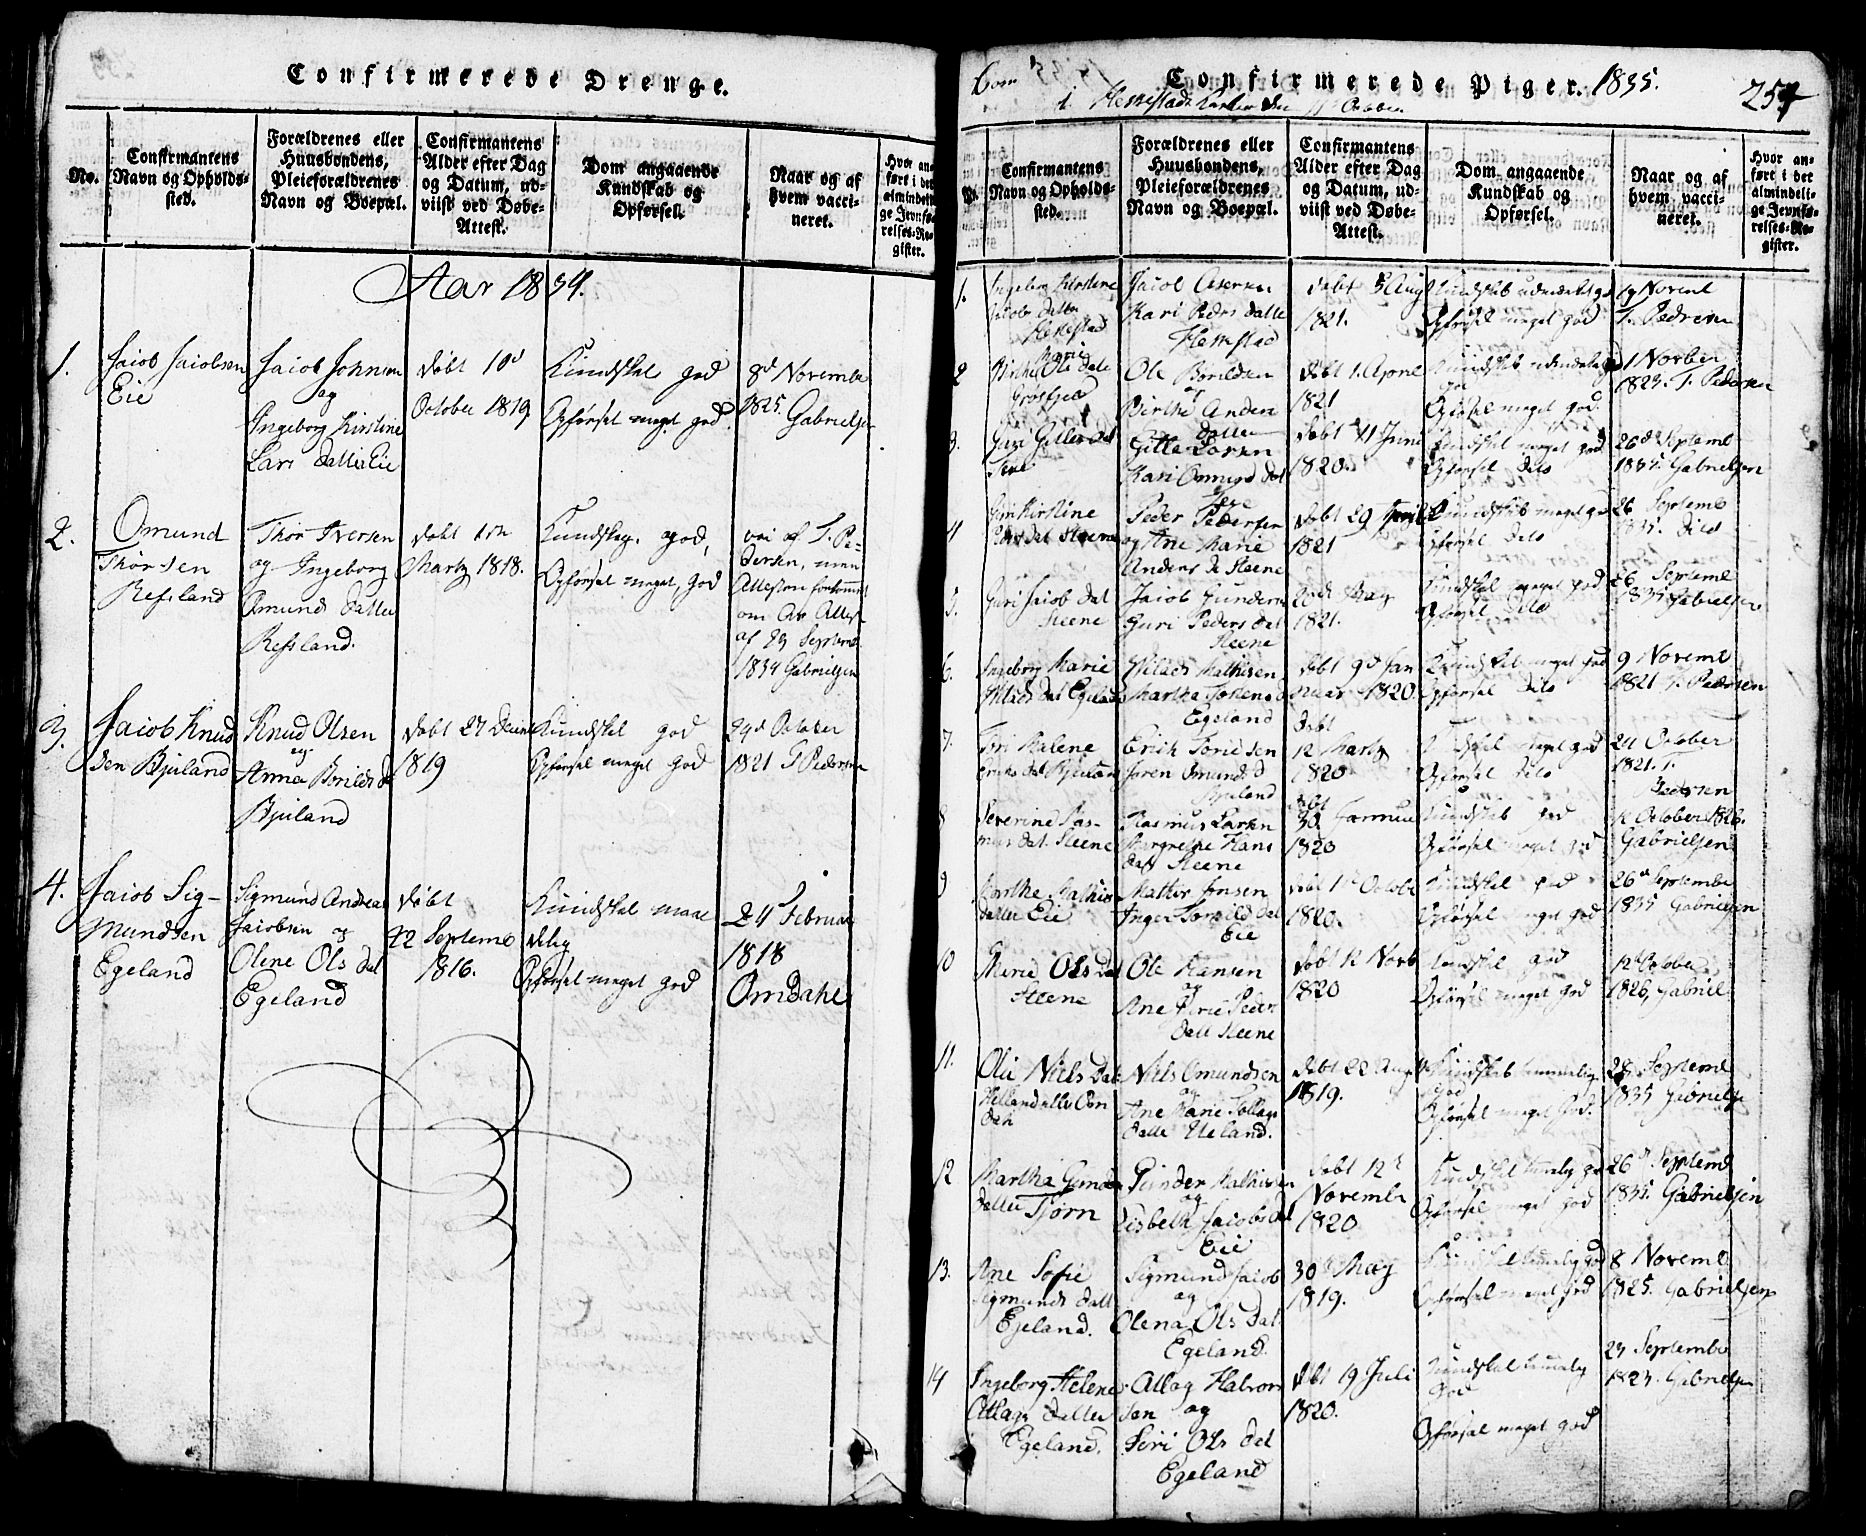 Confirmerede Drenge.
No.
Confirmantens
Navn og Opholds-
sted.
Forældrenes eller
Huusbondens,
Pleieforældrenes
Navn og Boepæl.
Confirmantens
Alder efter Dag
og Datum, ud-
viist ved Døbe-
Attest.
Dom angaaende
Kundskab og
Opførsel.
Naar og af
hvem vacci-
neret.
Hvor an-
ført i det
almindeli-
ge Jevnfø-
relses-Re-
gister.
Aar 1834.
1.
Jacob Jacobsen
Eie
Jacob Johnsen
og
Ingeborg Kirstine
Lars datter Eie
døbt 10d
October 1819
Kundskab god
Opførsel meget god.
8d Novembr
1825. Gabrielsen
2.
Omund
Thorsen
Refsland
Thor Iversen
og Ingeborg
Omunds datter
Refsland.
døbt
Marty 1818.
Kundskab god,
Opførsel meget god
vac af T. Pe-
dersen, men
Attesten forkommet
om Attest
af 23 Septembr
1834 Gabrielsen
3.
Jacob Knud
sen Bjuland
Knud Olsen
og
Anna Borilds d
Bjuland
døbt 27 Decem
1819
Kundskab god
Opførsel meget god
24d October
1821 T Pedersen
4.
Jacob Sig-
mundsen
Egeland
Sigmund Andreas
Jacobsen og
Olene Ols dat
Egeland
døbt
22 Septemb
1816.
Kundskab maae
delig
Opførsel meget god
24 Februar
1818
Omdahl
Confirmerede Piger. 1835.
257
i Heskestads Kirke den 11 October
No.
Confirmantens
Navn og Opholds-
sted.
Forældrenes eller
Huusbondens,
Pleieforældrenes
Navn og Boepæl.
Confirmantens
Alder efter Dag
og Datum, ud-
viist ved Døbe-
Attest.
Dom angaaende
Kundskab og
Opførsel.
Naar og af
hvem vacci-
neret.
Hvor an-
ført i det
almindeli-
ge Jevnfø-
relses-Re-
gister.
1.
Ingeborg Kirstine
Jacobs datter
Heskestad
Jacob Asersen
Kari Peders datter
Heskestad
døbt 5 Aug
1821.
Kundskab udmærket god
Opførsel meget god
19 Novemb
T. Pedersen
2
Birthe Marie Ols datter
Grosfjeld
Ole Borildsen
og
Birthe Anders
datter
døbt 1. April
1821
Kundskab
god
Opførsel meget god.
1 Novber
1823. T. Pedersen
3.
Guri Gitles dat
Gitle Larsen
Kari Omunds dat
døbt 11 Juni
1820.
Kundskab meget god
Opførsel dito
26de Septemb
1835. Gabrielsen
4
Kirstine
Peders dat Steene
Peder Pedersen
og Ane Marie
Anders d Steene
døbt 29 April
1821
Kundskab meget god
Opførsel dito
26 Septemb
1835. Dito
5.
Guri Jacobs dat
Steene
Jacob Gundersen
Guri Peders dat
Steene
20de May
1821.
Kundskab meget god
Opførsel dito
26 Septemb
1835 Gabrielsen
6.
Ingeborg Marie
dat Egeland
Mathisen
Martha d
Egeland
døbt 9d Jan
nuar 1820
Kundskab meget god
Opførsel dito
9 Novemb
1821 T. Pedersen
7.
Tori Malene
Eriks dat Bjuland
Erich Torildsen
Omunds d
Bjuland
døbt
12 Marty
1820
Kundskab meget god
Opførsel dito
24 October
1821. T.
Pedersen
8
Severine Ras-
mus dat. Steene
Rasmus Larsen
Margrethe Hans
dat Steene
døbt
30. Januar
1820
Kundskab god
Opførsel meget god
12 October 1826.
Gabrielsen
9
Marthe Mathis
datter Eie
Mathis Jensen
Inger Torkild dat
Eie
døbt 1st Octobr
1820.
Kundskab god
Opførsel meget god
26d Septembr
1835 Gabrielsen
10
Ols dat
Steene
Ole Hansen
og
Ane Peder
datt Steene
døbt 12 Novb
1820
Kundskab god
Opførsel meget god
12 October
1826, Gabriel.
11.
Nils dat
Nils Omundsen
og
Ane Marie Tollags
datter Ueland.
døbt 22 Aug
1819.
Kundskab temmelig
god
Opførsel meget god.
28 Septemb
1835 Gabrielse
12
Martha Gunder
datter Tjørn
Gunder Mathisen
og
Lisbeth Jacobs dat
Eie
døbt 12t
Novembr
1820
Kundskab temelig god
Opførsel meget god
26d Septemb
1835. Gabrielsen
13.
Ane Sofie
Sigmunds datt
Egeland.
Sigmund Jacob
og
Olena Ols dat
Egeland.
30d May
1819.
Kundskab temmelig god
Opførsel meget god
8 Novemb
1825. Gabrielsen
14
Ingeborg Helene
Atlags datter
Egeland.
Atlag Halvor
sen og
Siri Ols dat
Egeland
døbt 19 Juli
1820.
Kundskab temmelig
god
Opførsel meget god
23 Septembr
1823. Gabrielsen